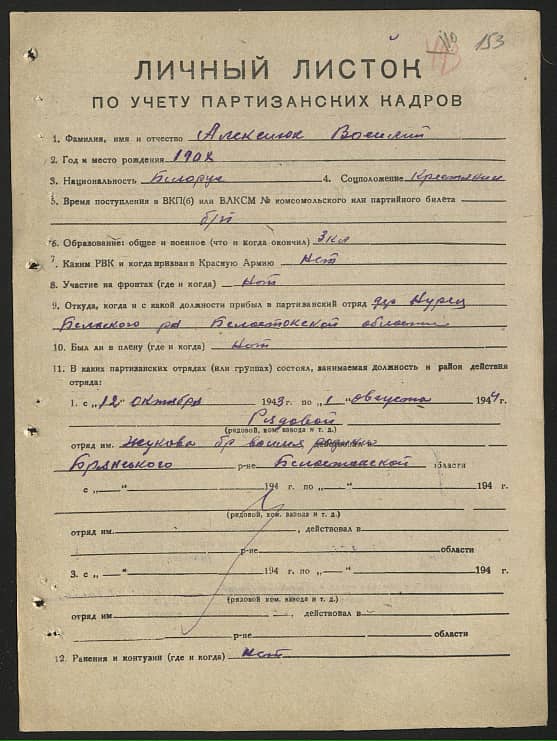 153
ЛИЧНЫЙ ЛИСТОК
ПО УЧЕТУ ПАРТИЗАНСКИХ КАДРОВ
1. Фамилия, имя и отчество Алексиюк Василий
2. Год и место рождения 1902
3. Национальность Белорус 4. Соцположение Крестьянин
5. Время поступления в ВКП(б) или ВЛКСМ № комсомольского или партийного билета
б/п
6. Образование: общее и военное (что и когда окончил) 3 кл
7. Каким РВК и когда призван в Красную Армию Нет
8. Участие на фронтах (где и когда) Нет
9. Откуда, когда и с какой должности прибыл в партизанский отряд дер Нурец
Бельского рн Белостокской области
10. Был ли в плену (где и когда) Нет
11. В каких партизанских отрядах (или группах) состоял, занимаемая должность и район действия
отряда:
1. с „12" октября 1943 г. по „1" августа 1944 г.
Рядовой
(рядовой, ком. взвода и т. д.)
отряд им. Жукова бр
Брянского р-не Белостокской области
с „ " 194 г. по „ " 194 г.
(рядовой, ком. взвода и т. д.)
отряд им. , действовал в
р-не области
3. с „ " 194 г. по „ " 194 г.
(рядовой, ком. взвода и т. д.)
отряд им , действовал в
р-не области
12. Ранения и контузии (где и когда) Нет